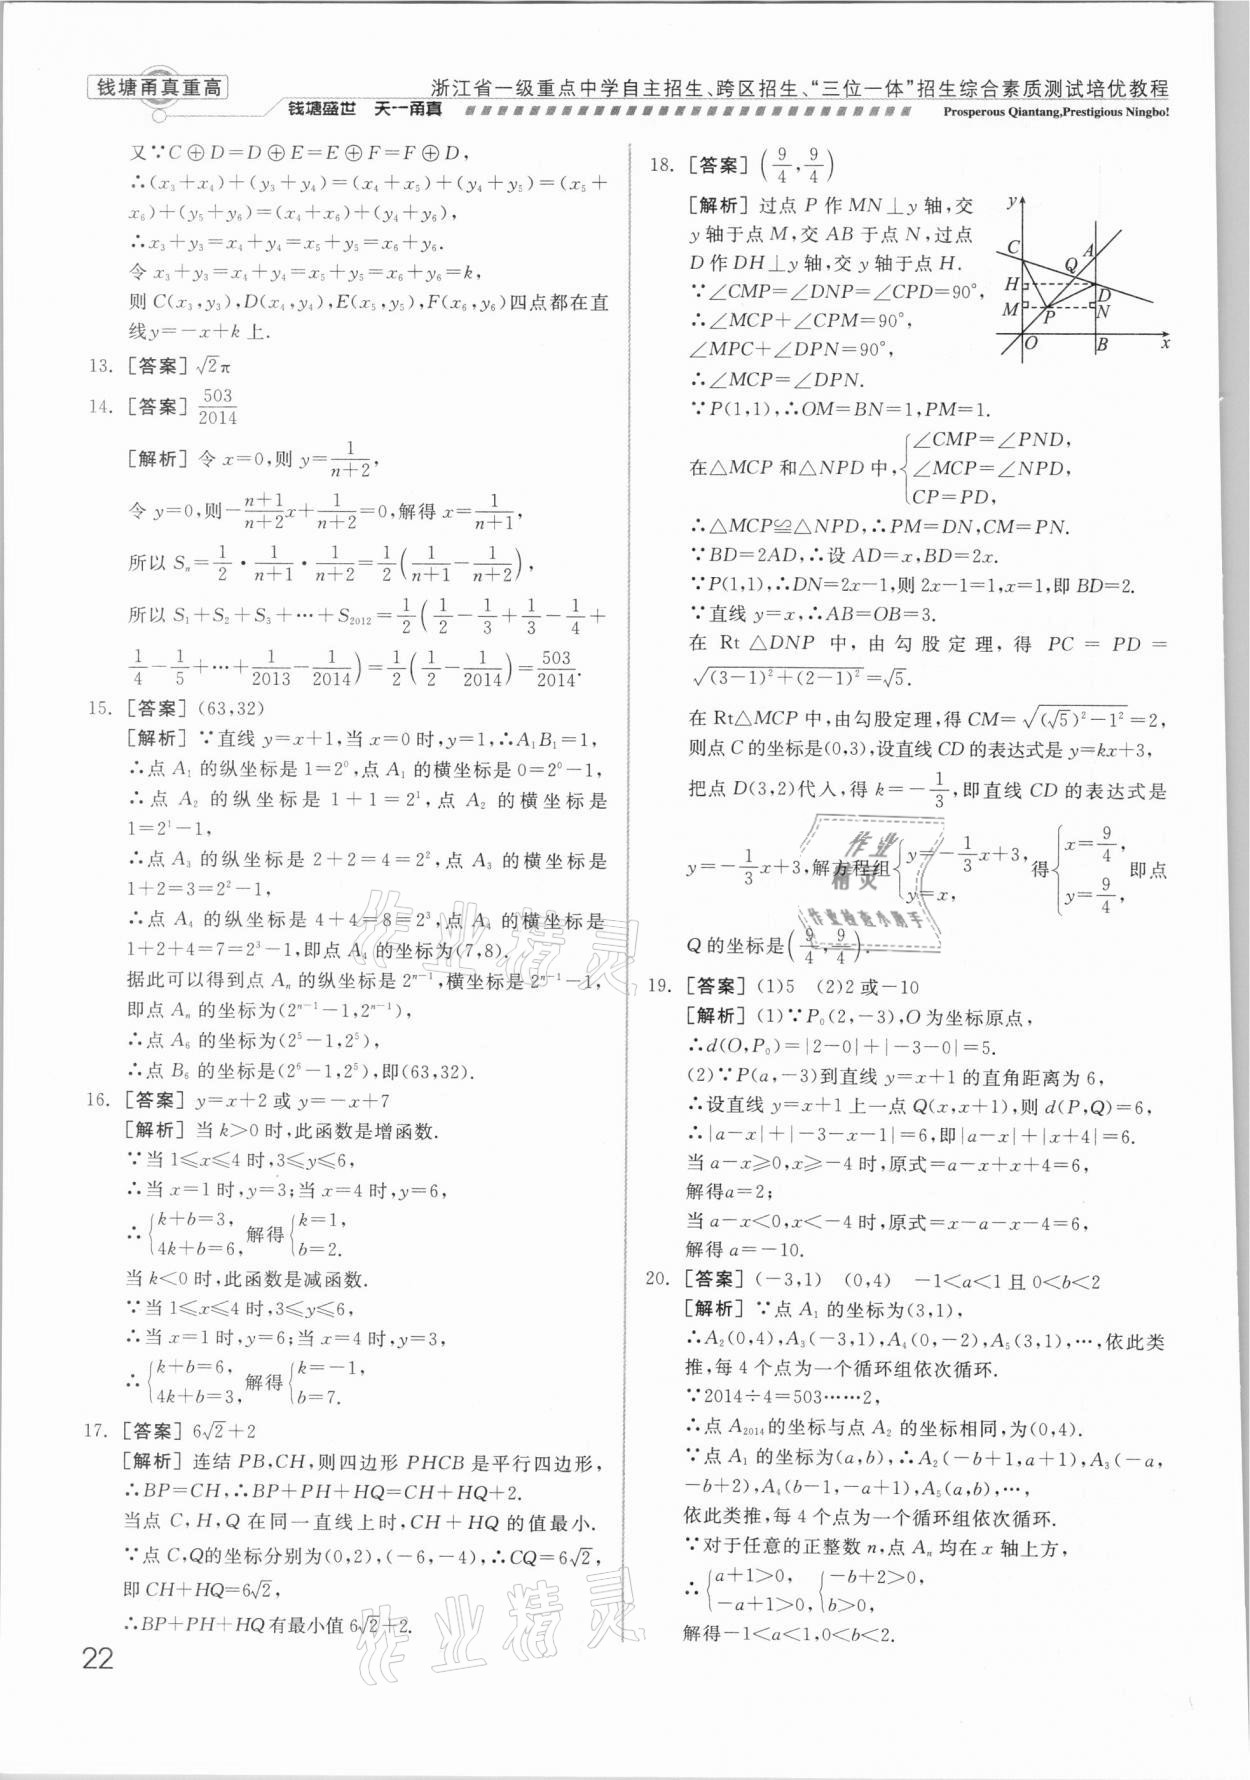 钱塘甬真重高
浙江省一级重点中学自主招生、跨区招生、“三位一体”招生综合素质测试培优教程
钱塘盛世 天一甬真
Prosperous Qiantang,Prestigious Ningbo!
又∵C⊕D=D⊕E=E⊕F=F⊕D,
∴(x₃+x₄)+(y₃+y₄)=(x₄+x₅)+(y₄+y₅)=(x₅+
x₆)+(y₅+y₆)=(x₄+x₆)+(y₄+y₆),
∴x₃+y₃=x₄+y₄=x₅+y₅=x₆+y₆.
令x₃+y₃=x₄+y₄=x₅+y₅=x₆+y₆=k,
则C(x₃,y₃),D(x₄,y₄),E(x₅,y₅),F(x₆,y₆)四点都在直
线y=-x+k上.
13. [答案] √2π
14. [答案] 503/2014
[解析] 令x=0,则y=1/(n+2),
令y=0,则-(n+1)/(n+2)x+1/(n+2)=0,解得x=1/(n+1),
所以Sₙ=1/2·1/(n+1)·1/(n+2)=1/2(1/(n+1)-1/(n+2)),
所以S₁+S₂+S₃+…+S₂₀₁₂=1/2(1/2-1/3+1/3-1/4+
1/4-1/5+…+1/2013-1/2014)=1/2(1/2-1/2014)=503/2014.
15. [答案] (63,32)
[解析] ∵直线y=x+1,当x=0时,y=1,∴A₁B₁=1,
∴点A₁的纵坐标是1=2⁰,点A₁的横坐标是0=2⁰-1,
∴点A₂的纵坐标是1+1=2¹,点A₂的横坐标是
1=2¹-1,
∴点A₃的纵坐标是2+2=4=2²,点A₃的横坐标是
1+2=3=2²-1,
∴点A₄的纵坐标是4+4=8=2³,点A₄的横坐标是
1+2+4=7=2³-1,即点A₄的坐标为(7,8).
据此可以得到点Aₙ的纵坐标是2ⁿ⁻¹,横坐标是2ⁿ⁻¹-1,
即点Aₙ的坐标为(2ⁿ⁻¹-1,2ⁿ⁻¹),
∴点A₆的坐标为(2⁵-1,2⁵),
∴点B₆的坐标是(2⁶-1,2⁵),即(63,32).
16. [答案] y=x+2或y=-x+7
[解析] 当k>0时,此函数是增函数.
∵当1≤x≤4时,3≤y≤6,
∴当x=1时,y=3;当x=4时,y=6,
∴{k+b=3, 4k+b=6, 解得{k=1, b=2.
当k<0时,此函数是减函数.
∵当1≤x≤4时,3≤y≤6,
∴当x=1时,y=6;当x=4时,y=3,
∴{k+b=6, 4k+b=3, 解得{k=-1, b=7.
17. [答案] 6√2+2
[解析] 连结PB,CH,则四边形PHCB是平行四边形,
∴BP=CH,∴BP+PH+HQ=CH+HQ+2.
当点C,H,Q在同一直线上时,CH+HQ的值最小.
∵点C,Q的坐标分别为(0,2),(-6,-4),∴CQ=6√2,
即CH+HQ=6√2,
∴BP+PH+HQ有最小值6√2+2.
22
18. [答案] (9/4,9/4)
[解析] 过点P作MN⊥y轴,交
y轴于点M,交AB于点N,过点
D作DH⊥y轴,交y轴于点H.
∵∠CMP=∠DNP=∠CPD=90°,
∴∠MCP+∠CPM=90°,
∠MPC+∠DPN=90°,
∴∠MCP=∠DPN.
y
C
A
Q
H
D
M
P
N
O
B
x
∵P(1,1),∴OM=BN=1,PM=1.
在△MCP和△NPD中,{∠CMP=∠PND, ∠MCP=∠NPD, CP=PD,
∴△MCP≌△NPD,∴PM=DN,CM=PN.
∵BD=2AD,∴设AD=x,BD=2x.
∵P(1,1),∴DN=2x-1,则2x-1=1,x=1,即BD=2.
∵直线y=x,∴AB=OB=3.
在Rt△DNP中,由勾股定理,得PC=PD=
√((3-1)²+(2-1)²)=√5.
在Rt△MCP中,由勾股定理,得CM=√((√5)²-1²)=2,
则点C的坐标是(0,3),设直线CD的表达式是y=kx+3,
把点D(3,2)代入,得k=-1/3,即直线CD的表达式是
y=-1/3x+3,解方程组{y=-1/3x+3, y=x, 得{x=9/4, y=9/4, 即点
Q的坐标是(9/4,9/4).
19. [答案] (1)5 (2)2或-10
[解析] (1)∵P₀(2,-3),O为坐标原点,
∴d(O,P₀)=|2-0|+|-3-0|=5.
(2)∵P(a,-3)到直线y=x+1的直角距离为6,
∴设直线y=x+1上一点Q(x,x+1),则d(P,Q)=6,
∴|a-x|+|-3-x-1|=6,即|a-x|+|x+4|=6.
当a-x≥0,x≥-4时,原式=a-x+x+4=6,
解得a=2;
当a-x<0,x<-4时,原式=x-a-x-4=6,
解得a=-10.
20. [答案] (-3,1) (0,4) -1<a<1且0<b<2
[解析] ∵点A₁的坐标为(3,1),
∴A₂(0,4),A₃(-3,1),A₄(0,-2),A₅(3,1),…,依此类
推,每4个点为一个循环组依次循环.
∵2014÷4=503……2,
∴点A₂₀₁₄的坐标与点A₂的坐标相同,为(0,4).
∵点A₁的坐标为(a,b),∴A₂(-b+1,a+1),A₃(-a,
-b+2),A₄(b-1,-a+1),A₅(a,b),…,
依此类推,每4个点为一个循环组依次循环.
∵对于任意的正整数n,点Aₙ均在x轴上方,
∴{a+1>0, -a+1>0, {-b+2>0, b>0,
解得-1<a<1,0<b<2.
作业精灵
作业检查小助手
作业精灵
作业精灵